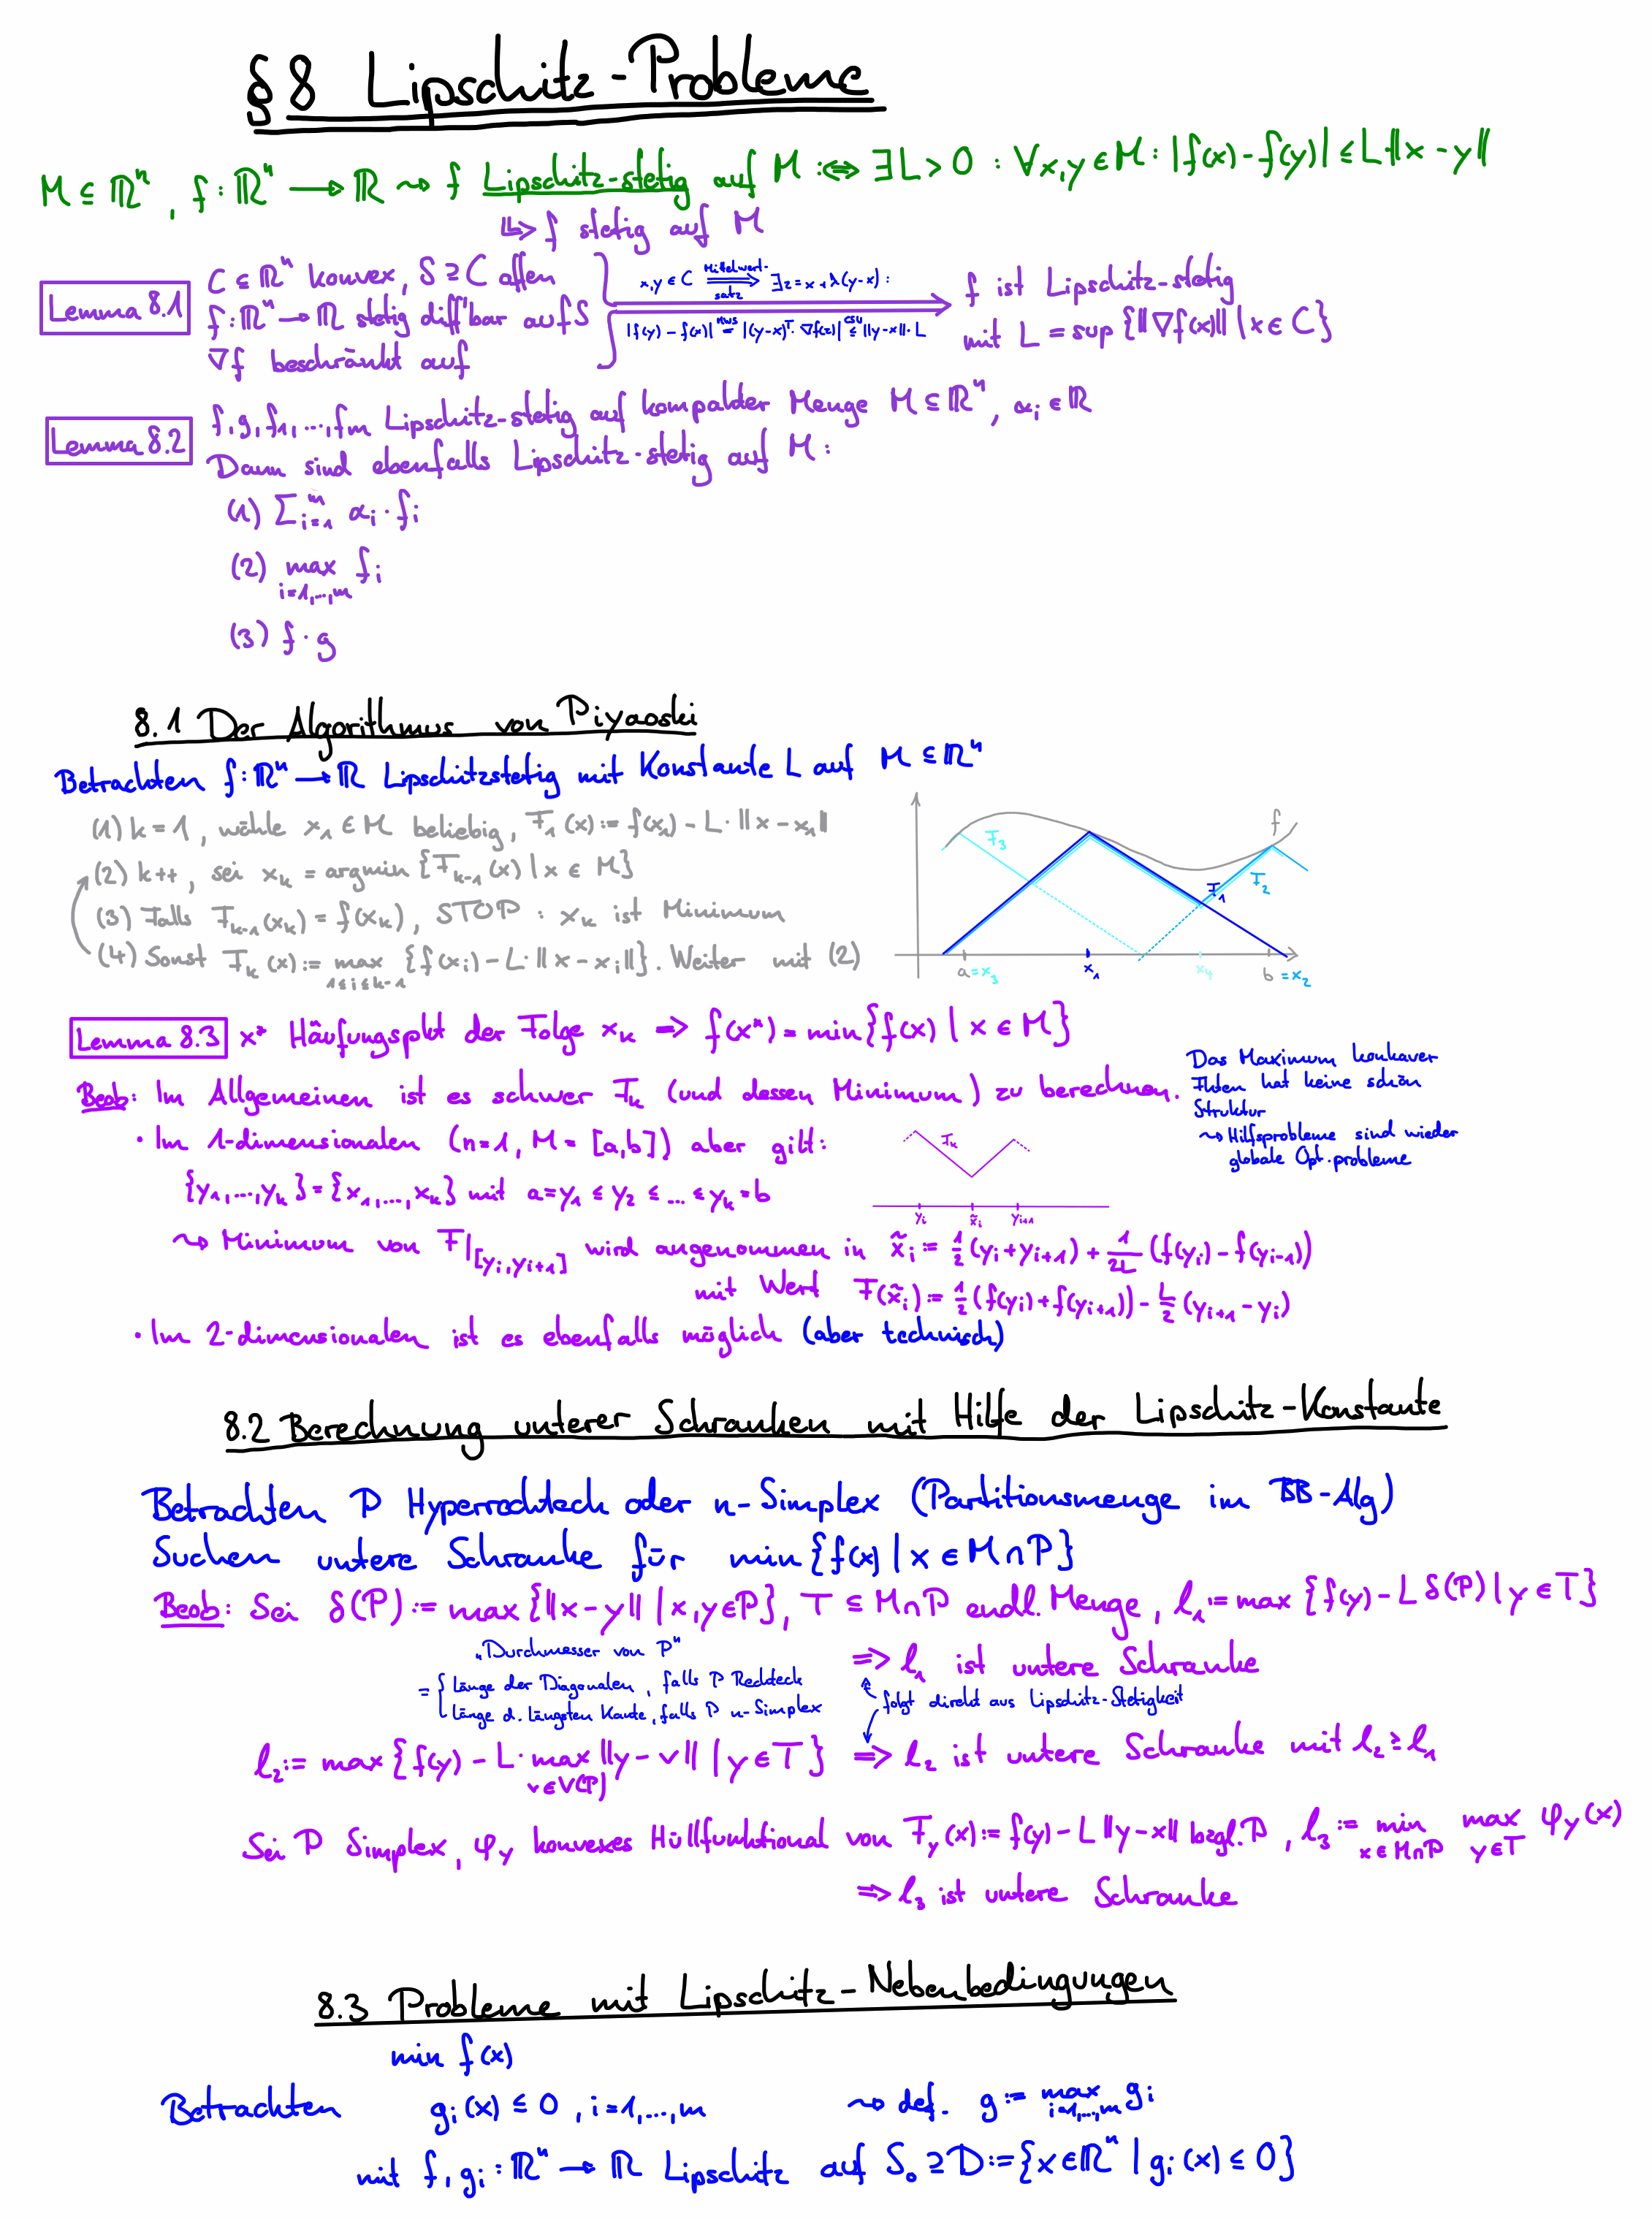 §8 Lipschitz-Probleme
M ⊆ ℝⁿ, f: ℝⁿ → ℝ ⇝ f Lipschitz-stetig auf M :⇔ ∃L > 0 : ∀x,y ∈ M : |f(x) - f(y)| ≤ L‖x - y‖
↳ f stetig auf M
Lemma 8.1
C ⊆ ℝⁿ konvex, S ⊇ C offen
f: ℝⁿ → ℝ stetig diff'bar auf S
∇f beschränkt auf
x,y ∈ C ⟹ Mittelwertsatz ∃z = x + λ(y-x) :
|f(y) - f(x)| =^{MWS} |(y-x)ᵀ · ∇f(z)| ≤^{CSU} ‖y-x‖ · L
f ist Lipschitz-stetig
mit L = sup {‖∇f(x)‖ | x ∈ C}
Lemma 8.2
f, g, f₁, ..., fₘ Lipschitz-stetig auf kompakter Menge M ⊆ ℝⁿ, αᵢ ∈ ℝ
Dann sind ebenfalls Lipschitz-stetig auf M:
(1) ∑ᵢ₌₁ᵐ αᵢ · fᵢ
(2) max_{i=1,...,m} fᵢ
(3) f · g
8.1 Der Algorithmus von Piyaoski
Betrachten f: ℝⁿ → ℝ Lipschitzstetig mit Konstante L auf M ⊆ ℝⁿ
(1) k = 1, wähle x₁ ∈ M beliebig, F₁(x) := f(x₁) - L · ‖x - x₁‖
(2) k++, sei xₖ = argmin {Fₖ₋₁(x) | x ∈ M}
(3) Falls Fₖ₋₁(xₖ) = f(xₖ), STOP : xₖ ist Minimum
(4) Sonst Fₖ(x) := max_{1≤i≤k-1} {f(xᵢ) - L · ‖x - xᵢ‖}. Weiter mit (2)
f
F₃
F₁
F₂
a = x₃
x₁
x₄
b = x₂
Lemma 8.3
x* Häufungspkt der Folge xₖ ⟹ f(x*) = min{f(x) | x ∈ M}
Beob: Im Allgemeinen ist es schwer Fₖ (und dessen Minimum) zu berechnen.
Das Maximum konkaver
Fkten hat keine schön
Struktur
⇝ Hilfsprobleme sind wieder
globale Opt.probleme
· Im 1-dimensionalen (n=1, M = [a,b]) aber gilt:
{y₁,...,yₖ} = {x₁,...,xₖ} mit a = y₁ ≤ y₂ ≤ ... ≤ yₖ = b
Fₖ
yᵢ
x̃ᵢ
yᵢ₊₁
⇝ Minimum von F|_{[yᵢ,yᵢ₊₁]} wird angenommen in x̃ᵢ := ½(yᵢ+yᵢ₊₁) + 1/(2L) (f(yᵢ) - f(yᵢ₋₁))
mit Wert F(x̃ᵢ) := ½(f(yᵢ)+f(yᵢ₊₁)) - L/2 (yᵢ₊₁ - yᵢ)
· Im 2-dimensionalen ist es ebenfalls möglich (aber technisch)
8.2 Berechnung unterer Schranken mit Hilfe der Lipschitz-Konstante
Betrachten P Hyperrechteck oder n-Simplex (Partitionsmenge im BB-Alg)
Suchen untere Schranke für min{f(x) | x ∈ M∩P}
Beob: Sei δ(P) := max{‖x-y‖ | x,y∈P}, T ⊆ M∩P endl. Menge, l₁ := max {f(y) - L δ(P) | y ∈ T}
„Durchmesser von P"
= { Länge der Diagonalen, falls P Rechteck
Länge d. längsten Kante, falls P n-Simplex
⟹ l₁ ist untere Schranke
folgt direkt aus Lipschitz-Stetigkeit
l₂ := max{f(y) - L · max_{v∈V(P)} ‖y - v‖ | y ∈ T} ⟹ l₂ ist untere Schranke mit l₂ ≥ l₁
Sei P Simplex, φ_y konvexes Hüllfunktional von F_y(x) := f(y) - L‖y-x‖ bzgl. P, l₃ := min_{x∈M∩P} max_{y∈T} φ_y(x)
⟹ l₃ ist untere Schranke
8.3 Probleme mit Lipschitz-Nebenbedingungen
min f(x)
Betrachten gᵢ(x) ≤ 0, i=1,...,m ⇝ def. g := max_{i=1,...,m} gᵢ
mit f, gᵢ : ℝⁿ → ℝ Lipschitz auf S₀ ⊇ D := {x∈ℝⁿ | gᵢ(x) ≤ 0}